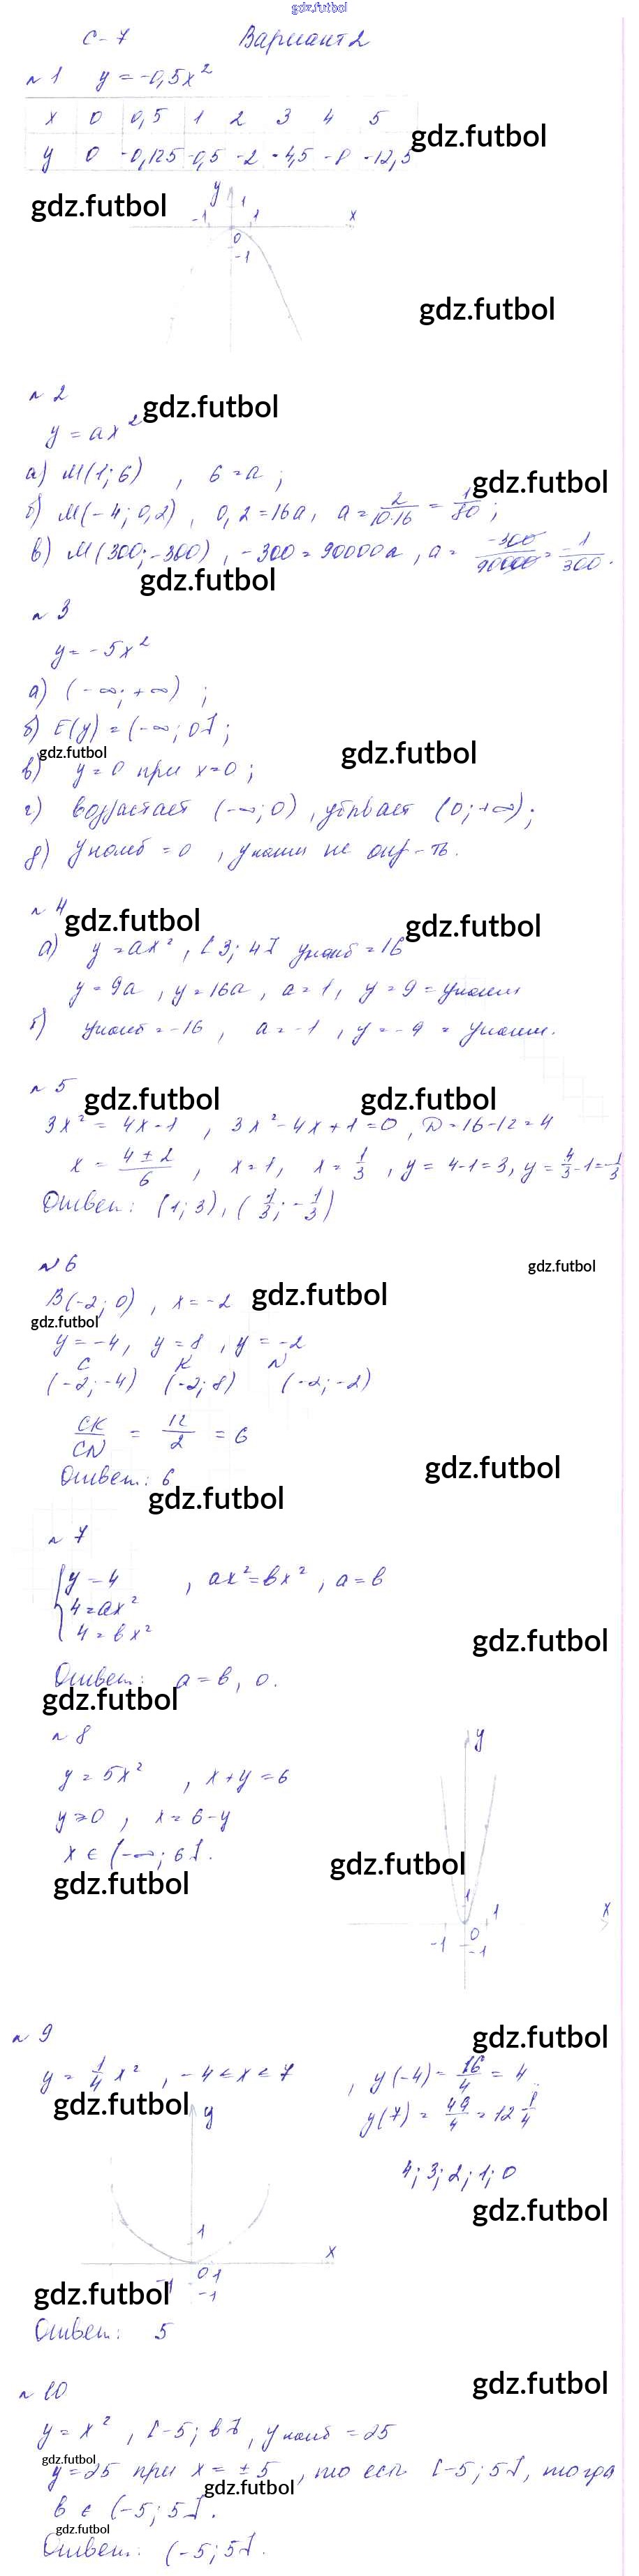 gdz.futbol
С-7 Вариант 2
№1 y = -0,5x²
x 0 0,5 1 2 3 4 5
y 0 -0,125 -0,5 -2 -4,5 -8 -12,5
gdz.futbol
gdz.futbol
y 1
-1 1 x
0
-1
gdz.futbol
№2
gdz.futbol
y = ax²
а) M(1; 6) , 6 = a ;
gdz.futbol
б) M(-4; 0,2) , 0,2 = 16a, a = 2/10·16 = 1/80 ;
в) M(300; -300) , -300 = 90000a , a = -300/90000 = -1/300 .
gdz.futbol
№3
y = -5x²
а) (-∞; +∞) ;
б) E(y) = (-∞; 0] ;
gdz.futbol
gdz.futbol
в) y = 0 при x = 0 ;
г) возрастает (-∞; 0) , убывает (0; +∞) ;
д) y наиб = 0 , y наим не опр-ть.
№4
gdz.futbol
gdz.futbol
а) y = ax² , [3; 4] y наиб = 16
y = 9a , y = 16a , a = 1 , y = 9 = y наим
б) y наиб = -16 , a = -1 , y = -9 = y наим.
№5
gdz.futbol
gdz.futbol
3x² = 4x - 1 , 3x² - 4x + 1 = 0 , D = 16 - 12 = 4
x = 4 ± 2/6 , x = 1 , x = 1/3 , y = 4 - 1 = 3 , y = 4/3 - 1 = -1/3
Ответ: (1; 3), (1/3; -1/3)
№6
gdz.futbol
B(-2; 0) , x = -2
gdz.futbol
gdz.futbol
y = -4 , y = 8 , y = -2
C K N
(-2; -4) (-2; 8) (-2; -2)
CK/CN = 12/2 = 6
gdz.futbol
Ответ: 6
gdz.futbol
№7
y = 4 , ax² = bx² , a = b
4 = ax²
4 = bx²
gdz.futbol
Ответ: a = b, 0.
gdz.futbol
№8
y
y = 5x² , x + y = 6
y ≥ 0 , x = 6 - y
x ∈ (-∞; 6].
gdz.futbol
gdz.futbol
1 1 x
-1 0
-1
№9
gdz.futbol
y = 1/4 x² , -4 < x < 7 , y(-4) = 16/4 = 4
gdz.futbol
y
y(7) = 49/4 = 12 1/4
4; 3; 2; 1; 0
gdz.futbol
1
x
-1 0 1
-1
gdz.futbol
Ответ: 5
gdz.futbol
№10
y = x² , [-5; b] , y наиб = 25
gdz.futbol
y = 25 при x = ±5 , то есть [-5; 5], тогда
gdz.futbol
b ∈ (-5; 5].
gdz.futbol
Ответ: (-5; 5].